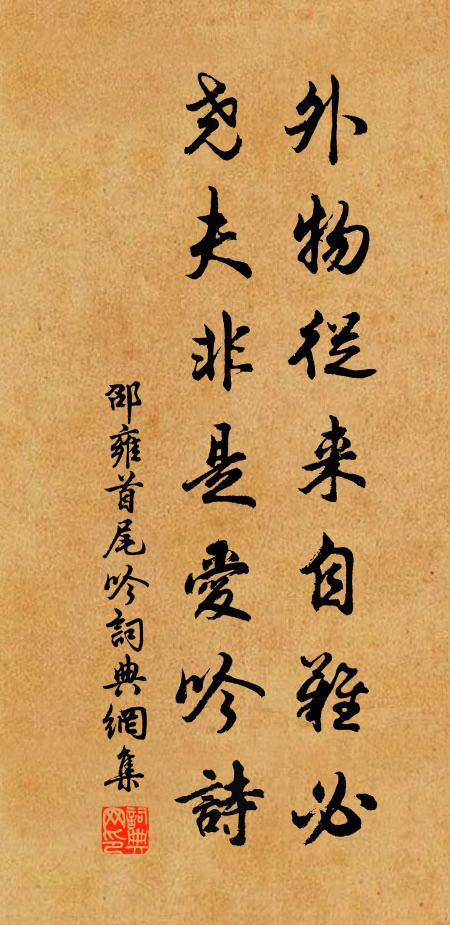 外物從来自難必
尧夫非是愛吟詩
邵雍首尾吟詞典網集
詞典网印